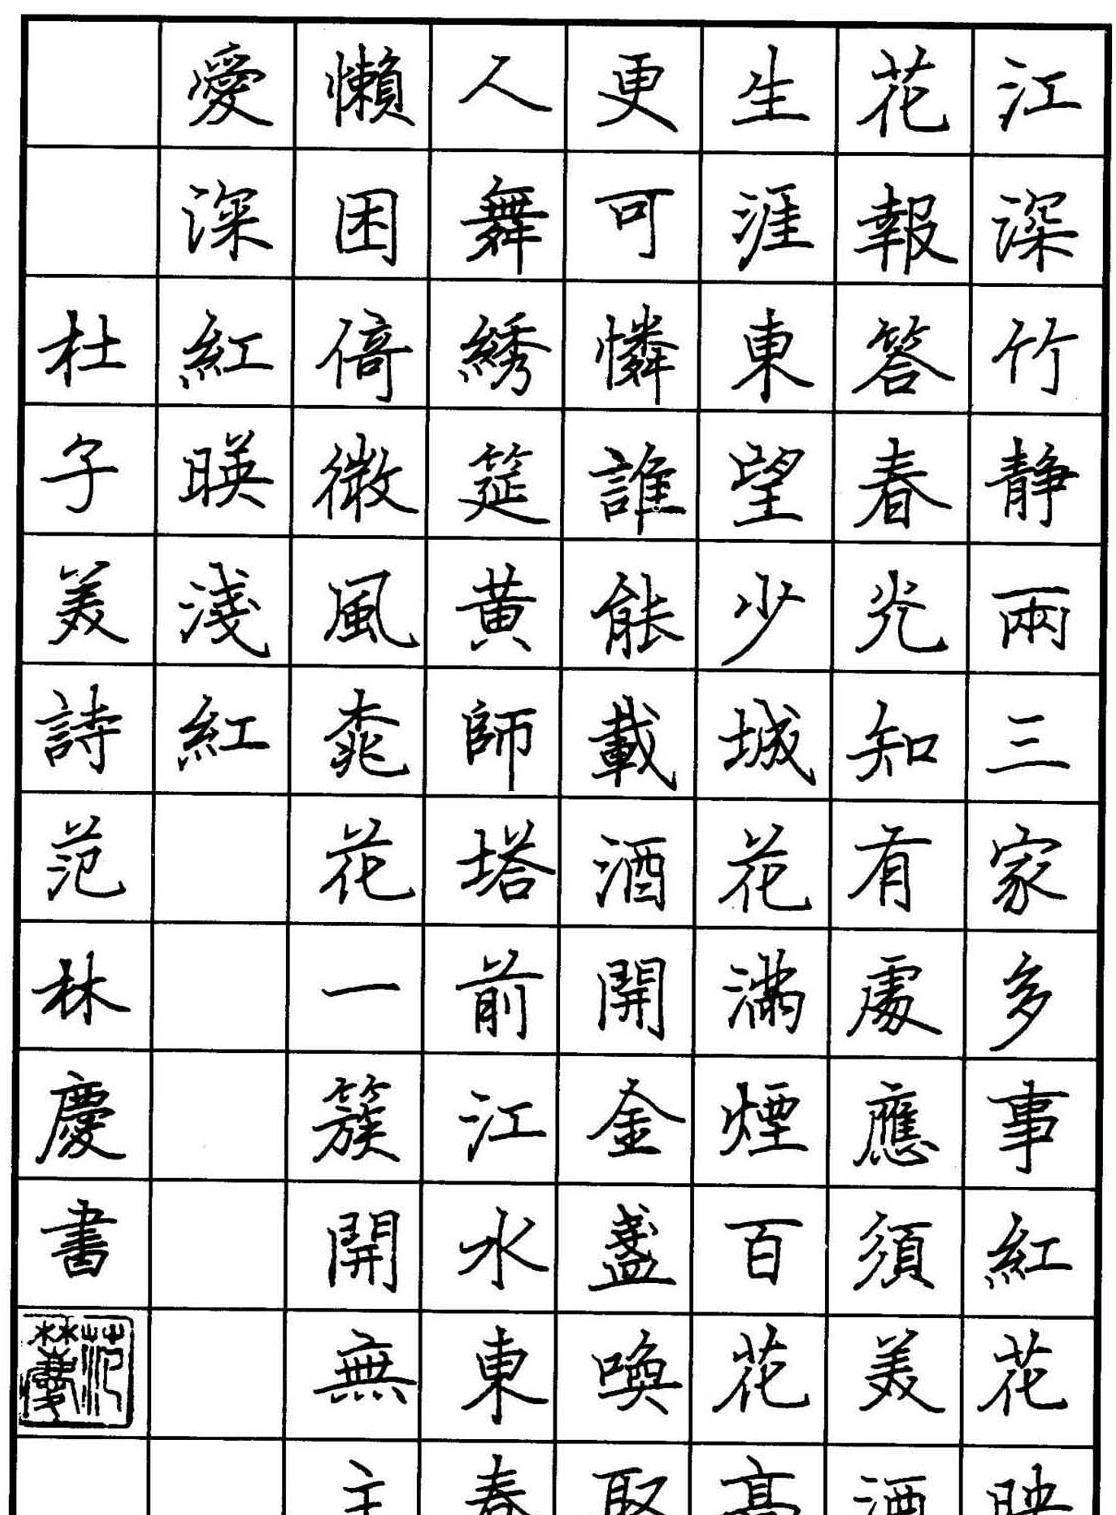 江深竹静兩三家多事紅花映
花報答春光知有處應須美酒
生涯東望少城花滿煙百花高
更可憐誰能載酒開金盞喚取
人舞綉筵黄師塔前江水東春
懶困倚微風桃花一簇開無主
愛深紅暎淺紅
杜子美詩范林慶書
范林慶